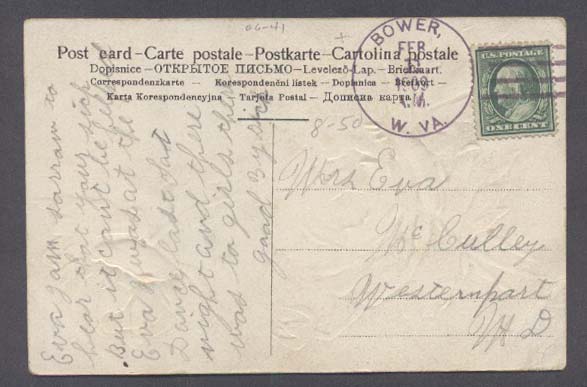 06-41
Post card – Carte postale – Postkarte – Cartolina postale
Dopisnice – ОТКРЫТОЕ ПИСЬМО – Levelező-Lap. – Briefkaart.
Correspondenzkarte – Korespondenční listek – Dopisnica – Brefkort –
Karta Korespondencyjna – Tarjeta Postal – Дописна карта
BOWER,
FEB
1909
A.M.
W. VA.
U.S. POSTAGE
ONE CENT
8-50
Mrs Eva
McCulley
Westernport
M D
Eva I am sorram to
hear that your sick
But it cant be help
Eva I was at the
Dance last sat
night and there
was to girls ther
good By